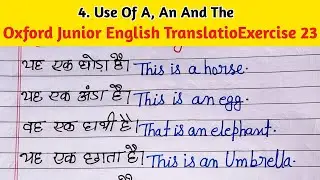 4. Use Of A, An And The
Oxford Junior English TranslatioExercise 23
यह एक घोड़ा है। This is a horse.
यह एक अंडा है। This is an egg.
वह एक हाथी है। That is an elephant.
यह एक छाता है। This is an Umbrella.